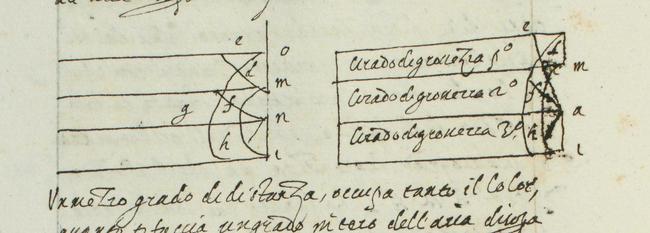 e o
d m
g f n
h i
e
Grado di grossezza 1° f m
Grado di grossezza 2° f a
Grado di grossezza 3° h i
Un mezzo grado di distanza, occupa tanto il Color,
quanto si faccia un grado intero dell'aria